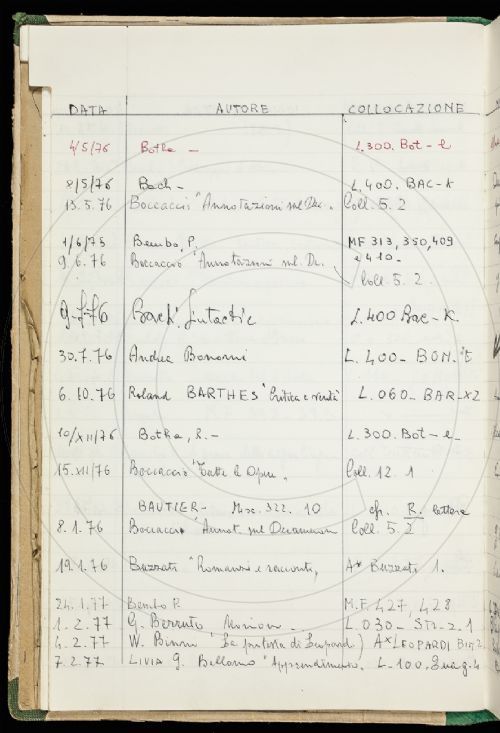 DATA AUTORE COLLOCAZIONE
4/5/76 Botha - L.300. Bot - e
8/5/76 Bach - L.400. BAC-K
13.5.76 Boccaccio "Annotazioni sul Dec. Coll. 5.2
1/6/75 Bembo, P. MF 313, 350, 409
9.6.76 Boccaccio "Annotazioni sul. De. e 410.
Coll. 5.2.
9-7-76 Bach: Sintactic L.400 Bac-K.
30.7.76 Andrea Bonomi L. 400- BON.
6.10.76 Roland BARTHES "Critica e verità L.060- BAR-x2
10/XII/76 Botha, R.- L.300. Bot-e-
15.XII/76 Boccaccio "Tutte le Opere" Coll. 12.1
BAUTIER- Misc. 322. 10 cfr. R. lettere
8.1.76 Boccaccio "Annot. sul Decameron Coll. 5.2
19.1.76 Buzzati "Romanzi e racconti" A* Buzzati 1.
24.1.77 Bembo P. M.F. 427, 428
1.2.77 G. Berruto L.030- 2.1
4.2.77 W. Binni "La protesta di Leopardi) A*LEOPARDI
7.2.77 LIVIA G. Apprendimento. L-100.